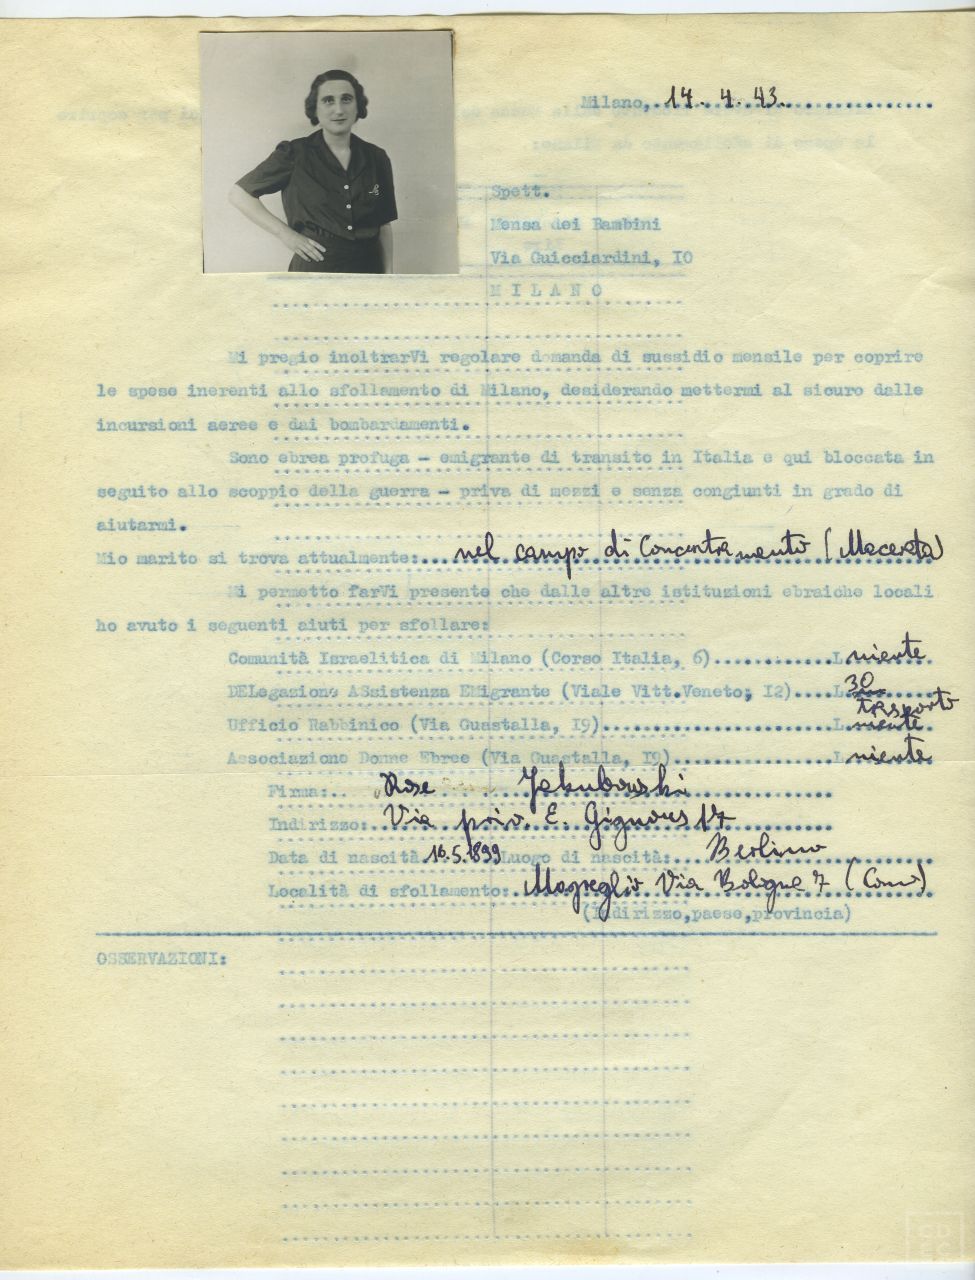 Milano, 14. 4. 43.
Spett.
Mensa dei Bambini
Via Guicciardini, 10
M I L A N O
Mi pregio inoltrarVi regolare domanda di sussidio mensile per coprire
le spese inerenti allo sfollamento di Milano, desiderando mettermi al sicuro dalle
incursioni aeree e dai bombardamenti.
Sono ebrea profuga - emigrante di transito in Italia e qui bloccata in
seguito allo scoppio della guerra - priva di mezzi e senza congiunti in grado di
aiutarmi.
Mio marito si trova attualmente:... nel campo di Concentramento (Macerata)
Mi permetto farVi presente che dalle altre istituzioni ebraiche locali
ho avuto i seguenti aiuti per sfollare:
Comunità Israelitica di Milano (Corso Italia, 6)............L. niente
DELegazione ASsistenza EMigrante (Viale Vitt.Veneto; 12)....L. 30
trasporto
Ufficio Rabbinico (Via Guastalla, 19).......................L. niente
Associazione Donne Ebree (Via Guastalla, 19)................L. niente
Firma:.. Rose Jakubowski
Indirizzo: Via priv. E. Gignous 17
Data di nascita. 16.5.1899 Luogo di nascita:... Berlino
Località di sfollamento: Magreglio Via Bologna 7 (Como)
(Indirizzo,paese,provincia)
OSSERVAZIONI:
CDEC